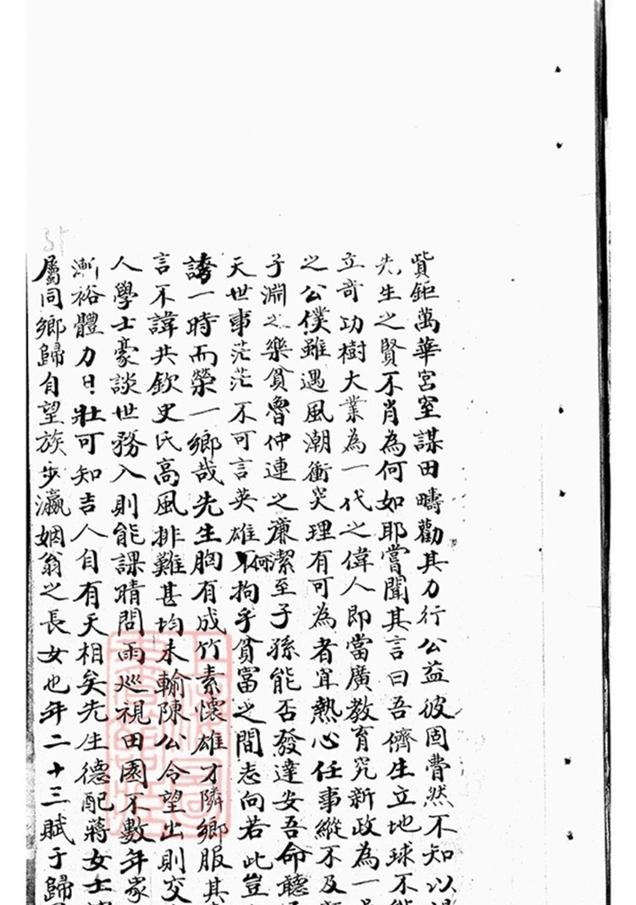 貲鉅萬華宮室謀田疇勸其力行公益彼固瞢然不知以視
先生之賢不肖為何如耶嘗聞其言曰吾儕生立地球不能
立奇功樹大業為一代之偉人即當廣教育究新政為一
之公僕雖遇風潮衝突理有可為者宜熱心任事縱不及
子淵之樂貧魯仲連之廉潔至子孫能否發達安吾命聽
天世事茫茫不可言英雄何拘乎貧富之間志向若此豈
誇一時而榮一鄉哉先生胸有成竹素懷雄才隣鄉服其
言不諱共欽史氏高風排難甚均未輸陳公令望出則交
人學士豪談世務入則能課晴問雨巡視田園不數年家
漸裕體力日壯可知吉人自有天相矣先生德配蔣女士
屬同鄉歸自望族步瀛姻翁之長女也年二十三賦于歸